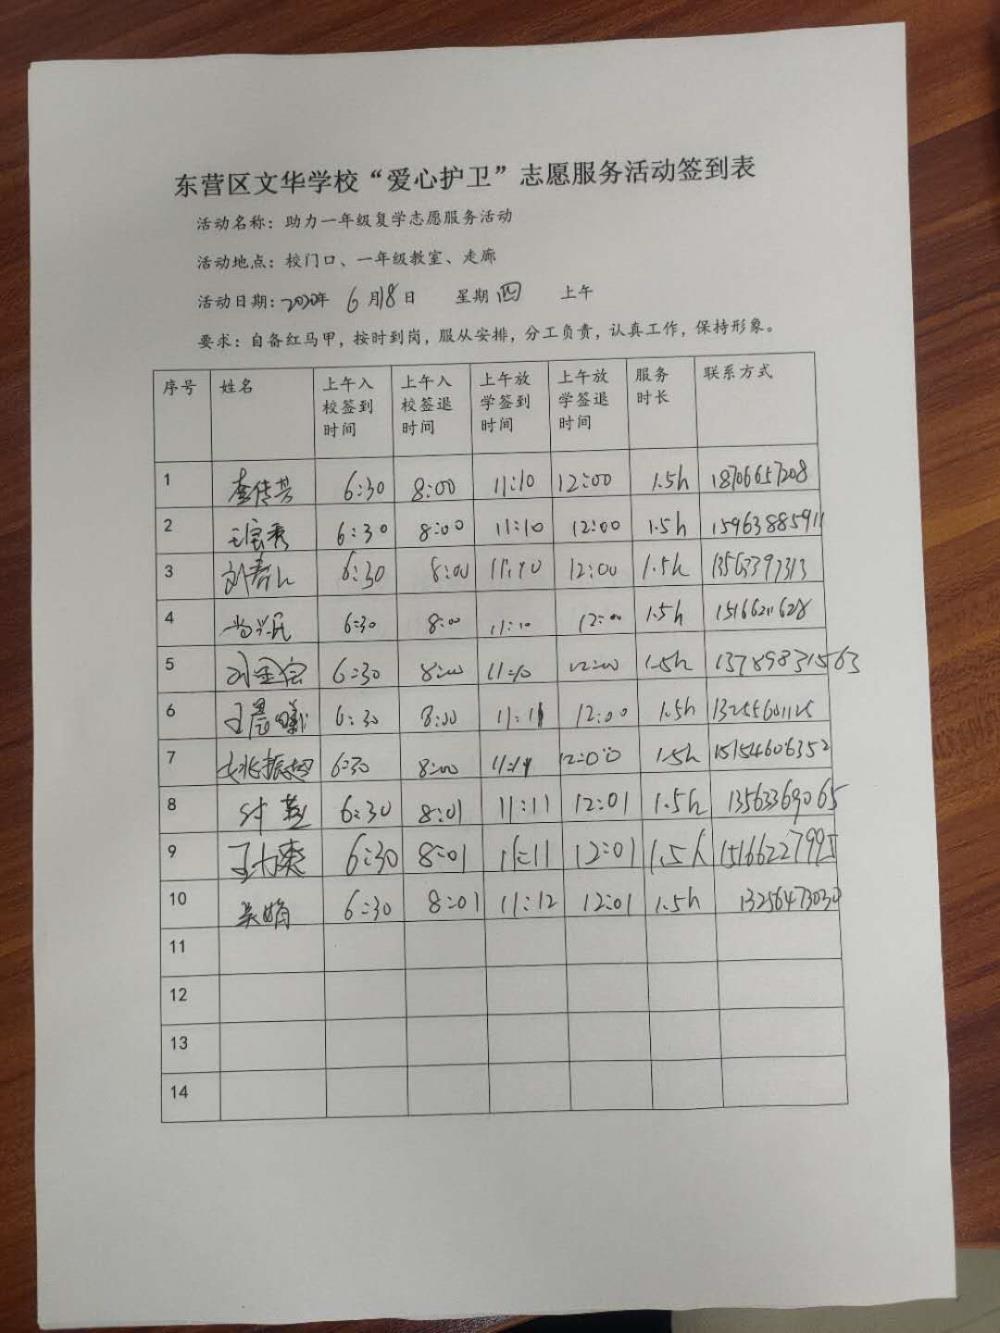 东营区文华学校“爱心护卫”志愿服务活动签到表
活动名称：助力一年级复学志愿服务活动
活动地点：校门口、一年级教室、走廊
活动日期：2020年 6月18日 星期四 上午
要求：自备红马甲，按时到岗，服从安排，分工负责，认真工作，保持形象。
序号 姓名 上午入校签到时间 上午入校签退时间 上午放学签到时间 上午放学签退时间 服务时长 联系方式
1 6:30 8:00 11:10 12:00 1.5h 18706657208
2 6:30 8:00 11:10 12:00 1.5h 15963885911
3 6:30 8:00 11:10 12:00 1.5h 13563397313
4 6:30 8:00 11:10 12:00 1.5h
5 6:30 8:00 11:10 12:00 1.5h
6 王晨曦 6:30 8:00 11:11 12:00 1.5h
7 姚振超 6:30 8:00 11:11 12:00 1.5h 15154606352
8 6:30 8:01 11:11 12:01 1.5h 13563369065
9 6:30 8:01 11:11 12:01 1.5h 15166227995
10 吴娟 6:30 8:01 11:12 12:01 1.5h 13256473030
11
12
13
14